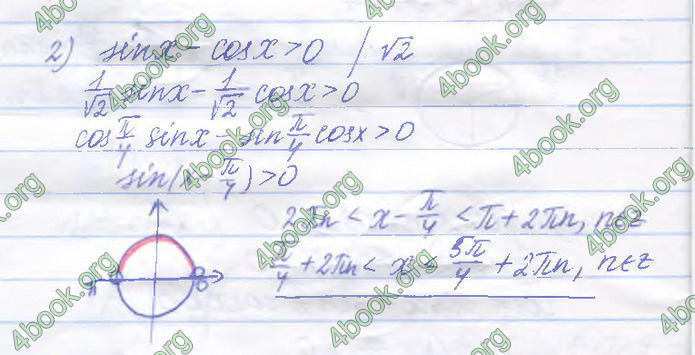 2) sinx - cosx > 0 / √2
1/√2 sinx - 1/√2 cosx > 0
cos π/4 sinx - sin π/4 cosx > 0
sin(x - π/4) > 0
2πn < x - π/4 < π + 2πn, n∈z
π/4 + 2πn < x < 5π/4 + 2πn, n∈z
π 0
4book.org